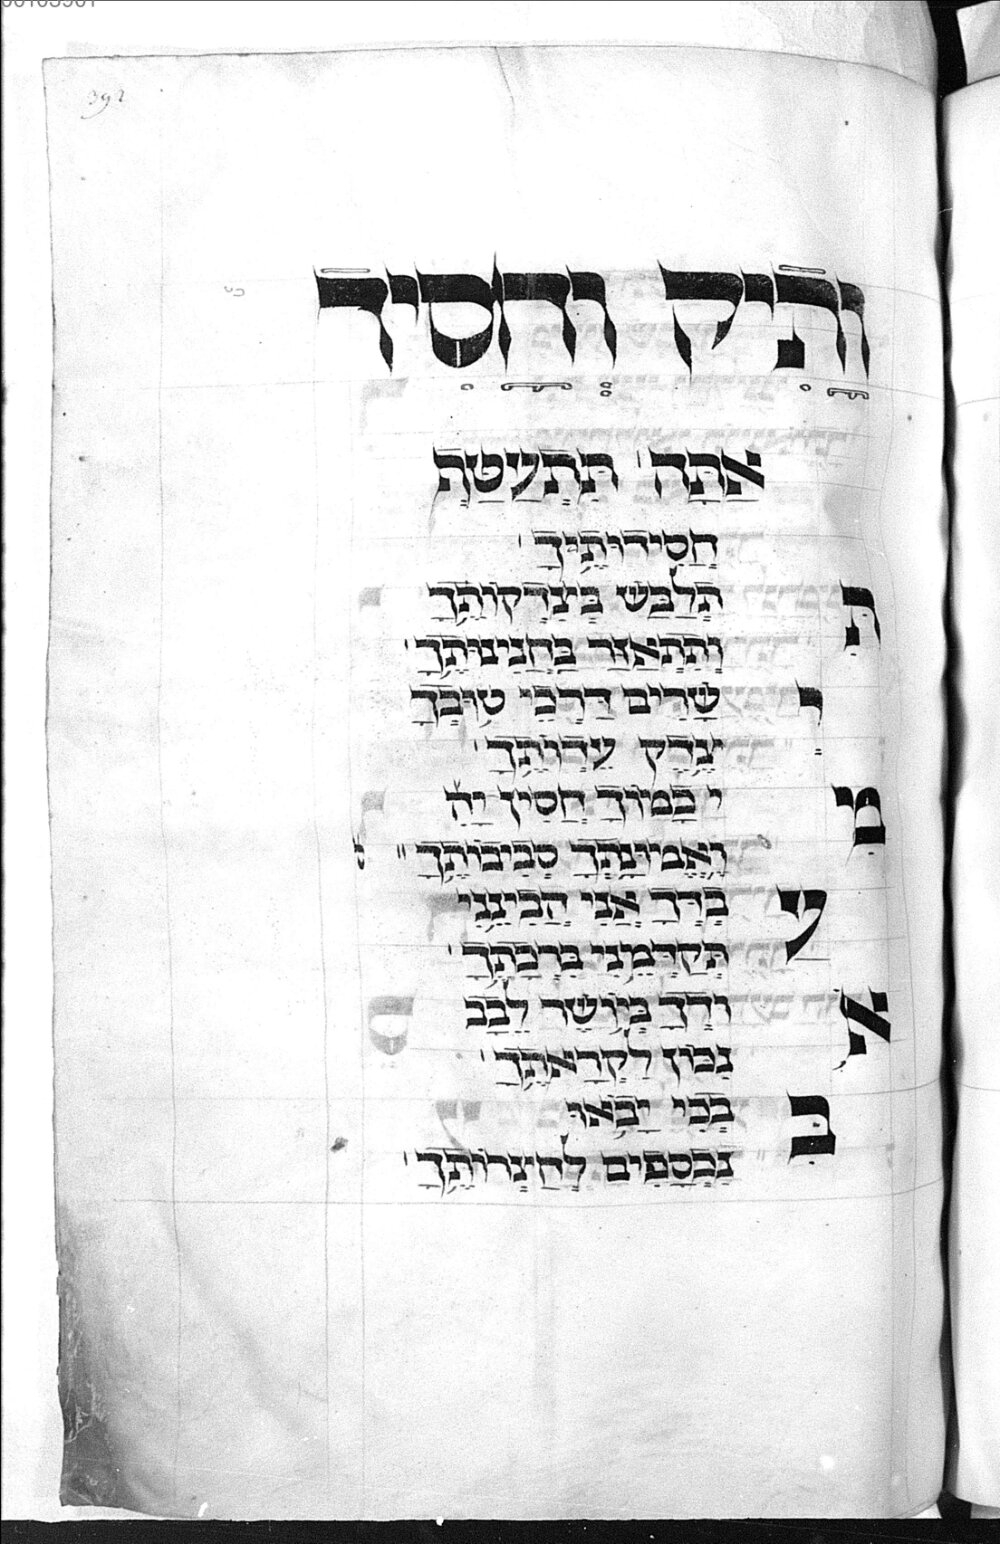 392
וָתִיק וְחָסִיד
אַתָּה תִּתְעַטֵּף
חֲסִידוּתֶיךָ
תִּלְבַּשׁ בְּצִדְקוֹתֶךָ
וְתִתְאַזַּר בַּחֲנִינוּתֶךָ
שָׁרִים דַּרְכֵי טוּבֶךָ
יִצְדַּק עֵדוֹתֶךָ
מִי כָמוֹךָ חֲסִין יָהּ
וֶאֱמוּנָתְךָ סְבִיבוֹתֶיךָ
בִּדְךָ אֲנִי הֲבִינֵנִי
תְּקַדְּמֵנִי בִּרְכָתֶךָ
אוֹדְךָ בְּיוֹשֶׁר לֵבָב
נָכוֹן לִקְרָאתֶךָ
בְּבֵי יָבֹאוּ
נִכְסָפִים לְחַצְרוֹתֶיךָ